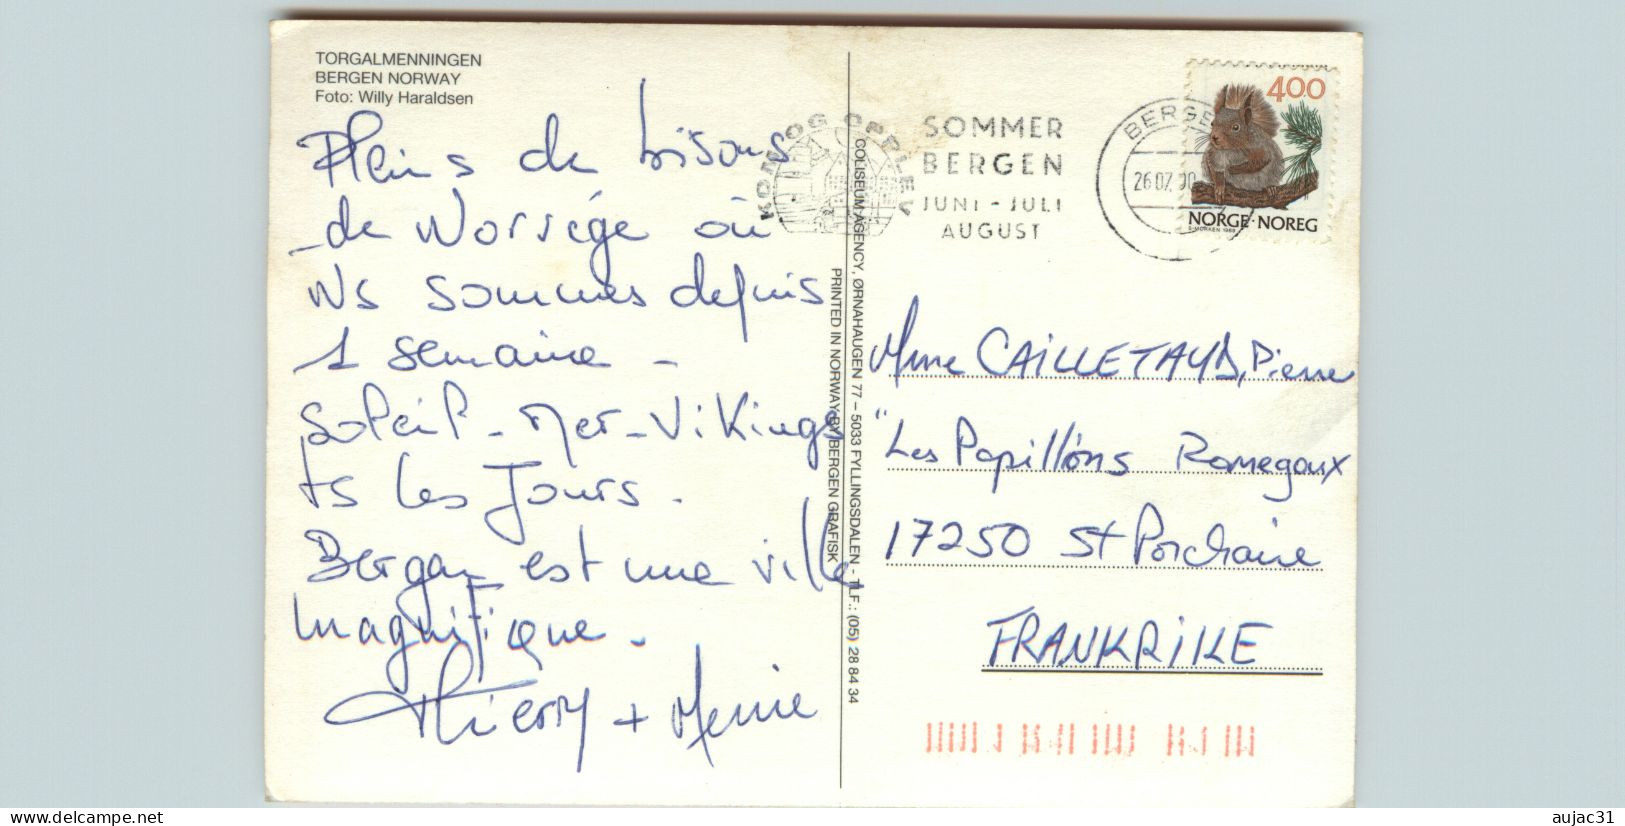 TORGALMENNINGEN
BERGEN NORWAY
Foto: Willy Haraldsen
Pleins de bisous
de Norvège où
ns sommes depuis
1 semaine -
Soleil - mer - Vikings
ts les Jours.
Bergen est une ville
magnifique.
Thierry +
KOM OG OPPLEV
SOMMER
BERGEN
JUNI - JULI
AUGUST
BERGE
26.07.90
400
NORGE·NOREG
S·MORKEN 1989
COLISEUM AGENCY, ØRNAHAUGEN 77 – 5033 FYLLINGSDALEN - TLF.: (05) 28 84 34
PRINTED IN NORWAY BY BERGEN GRAFISK
Mme CAILLETAUD, Pierre
"Les Papillons Romegoux
17250 St Porchaire
FRANKRIKE
delcampe.net
aujac31